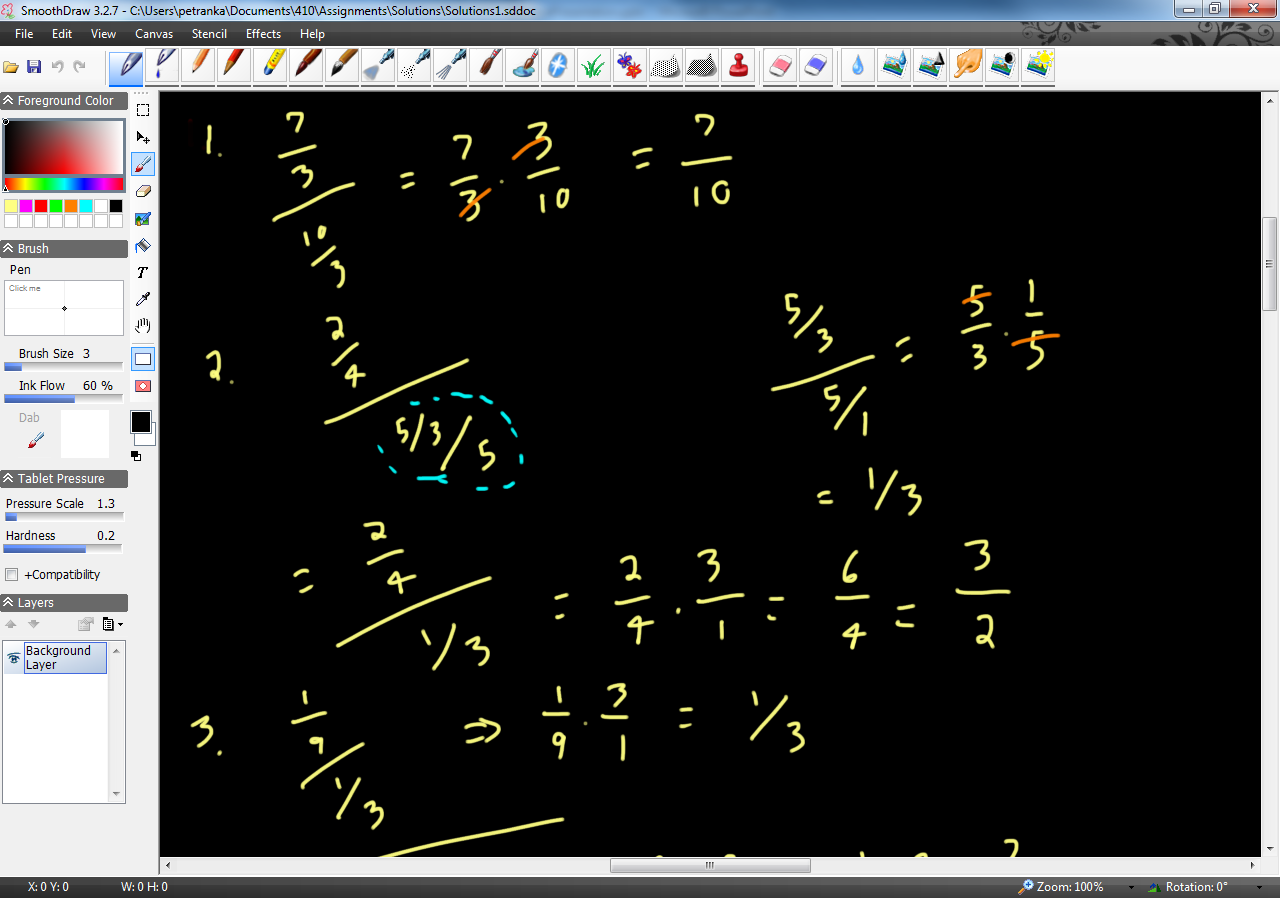 SmoothDraw 3.2.7 - C:\Users\petranka\Documents\410\Assignments\Solutions\Solutions1.sddoc
File Edit View Canvas Stencil Effects Help
Foreground Color
Brush
Pen
Click me
Brush Size 3
Ink Flow 60 %
Dab
Tablet Pressure
Pressure Scale 1.3
Hardness 0.2
+Compatibility
Layers
Background
Layer
1. 7/3 / 10/3 = 7/3 · 3/10 = 7/10
2. 2/4 / 5/3/5
5/3 / 5/1 = 5/3 · 1/5
= 1/3
= 2/4 / 1/3 = 2/4 · 3/1 = 6/4 = 3/2
3. 1/9 / 1/3 ⇒ 1/9 · 3/1 = 1/3
X: 0 Y: 0 W: 0 H: 0 Zoom: 100% Rotation: 0°